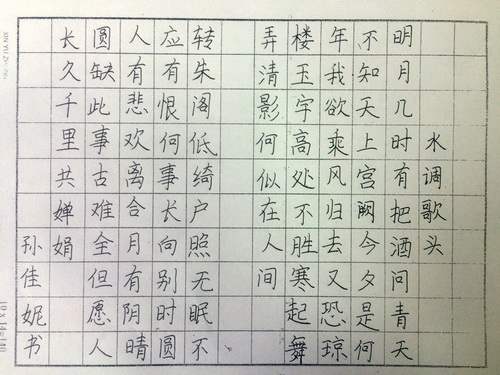 水调歌头
明月几时有把酒问青天
不知天上宫阙今夕是何
年我欲乘风归去又恐琼
楼玉宇高处不胜寒起舞
弄清影何似在人间
转朱阁低绮户照无眠不
应有恨何事长向别时圆
人有悲欢离合月有阴晴
圆缺此事古难全但愿人
长久千里共婵娟
孙佳妮书